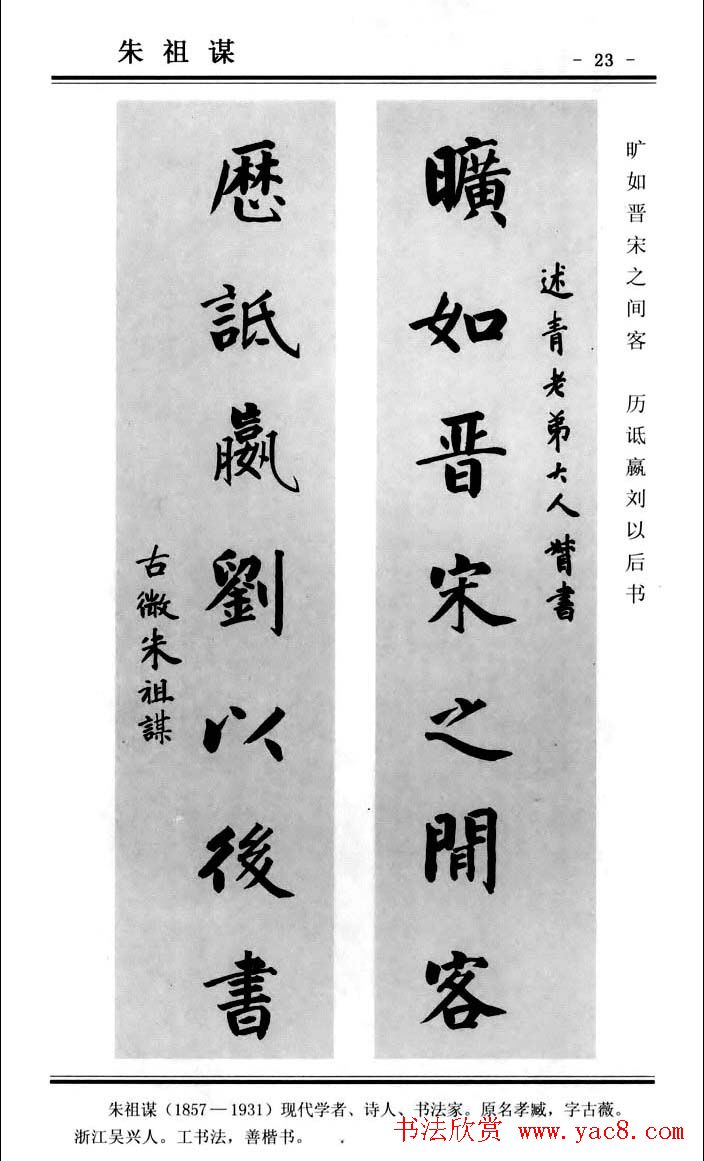 朱祖谋
- 23 -
旷如晋宋之间客 历诋嬴刘以后书
述青老弟大人詧書
曠如晋宋之閒客
歷詆嬴劉以後書
古微朱祖謀
朱祖谋（1857—1931）现代学者、诗人、书法家。原名孝臧，字古薇。
浙江吴兴人。工书法，善楷书。
书法欣赏 www.yac8.com